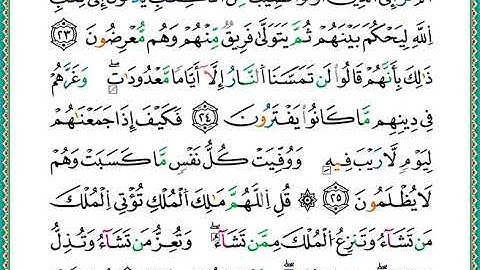 ٱللَّهِ لِيَحۡكُمَ بَيۡنَهُمۡ ثُمَّ يَتَوَلَّىٰ فَرِيقٞ مِّنۡهُمۡ وَهُم مُّعۡرِضُونَ ٢٣
ذَٰلِكَ بِأَنَّهُمۡ قَالُواْ لَن تَمَسَّنَا ٱلنَّارُ إِلَّآ أَيَّامٗا مَّعۡدُودَٰتٖۖ وَغَرَّهُمۡ
فِي دِينِهِم مَّا كَانُواْ يَفۡتَرُونَ ٢٤ فَكَيۡفَ إِذَا جَمَعۡنَٰهُمۡ
لِيَوۡمٖ لَّا رَيۡبَ فِيهِ وَوُفِّيَتۡ كُلُّ نَفۡسٖ مَّا كَسَبَتۡ وَهُمۡ
لَا يُظۡلَمُونَ ٢٥ قُلِ ٱللَّهُمَّ مَٰلِكَ ٱلۡمُلۡكِ تُؤۡتِي ٱلۡمُلۡكَ
مَن تَشَآءُ وَتَنزِعُ ٱلۡمُلۡكَ مِمَّن تَشَآءُۖ وَتُعِزُّ مَن تَشَآءُ وَتُذِلُّ